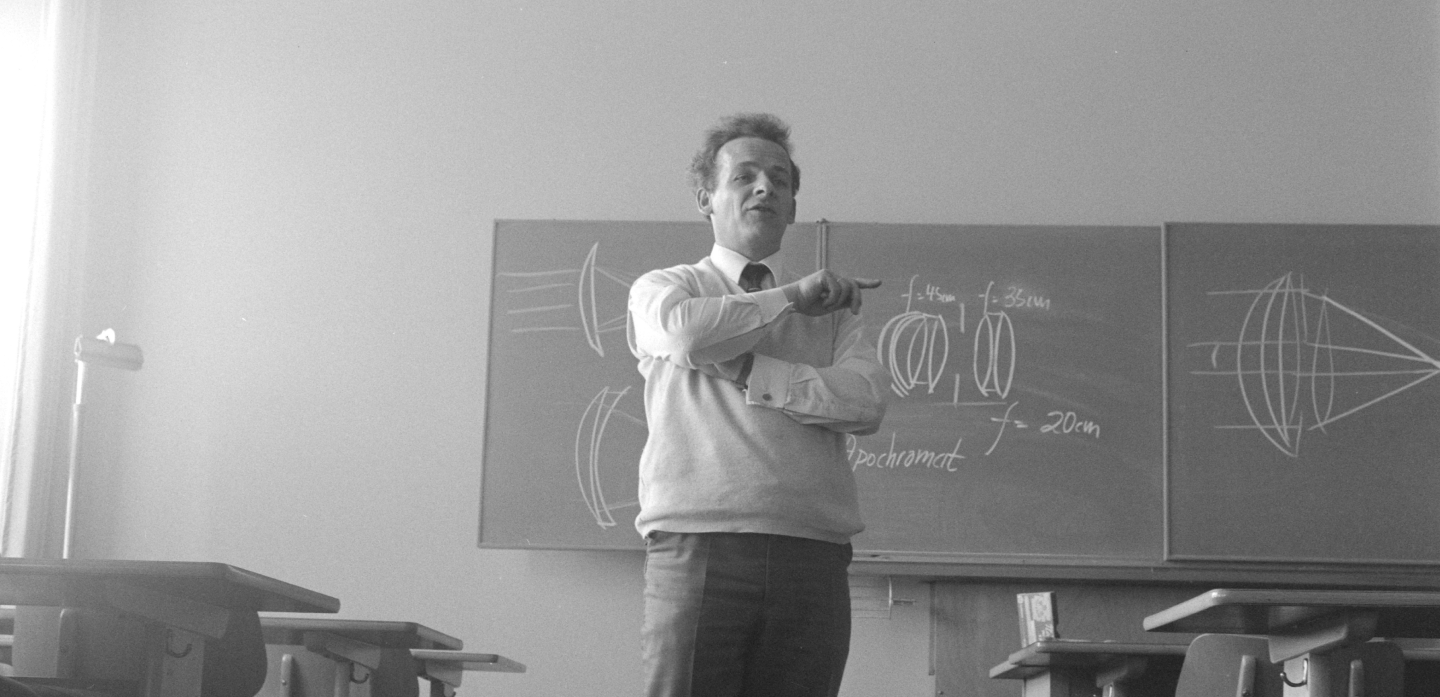 f=45cm
f=35cm
f= 20cm
Apochromat